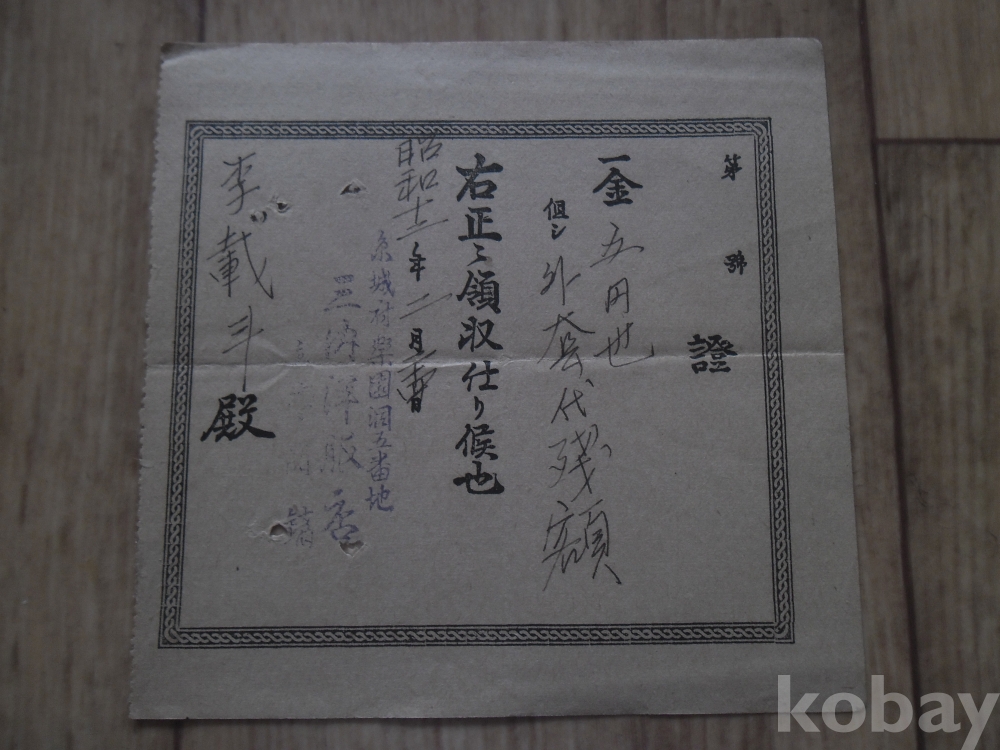 第 號
證
一金 五円也
但シ 外套代残額
右正ニ領収仕リ候也
昭和十二年 二月 日
京城府樂園洞五番地
洋服店
李載斗殿
kobay